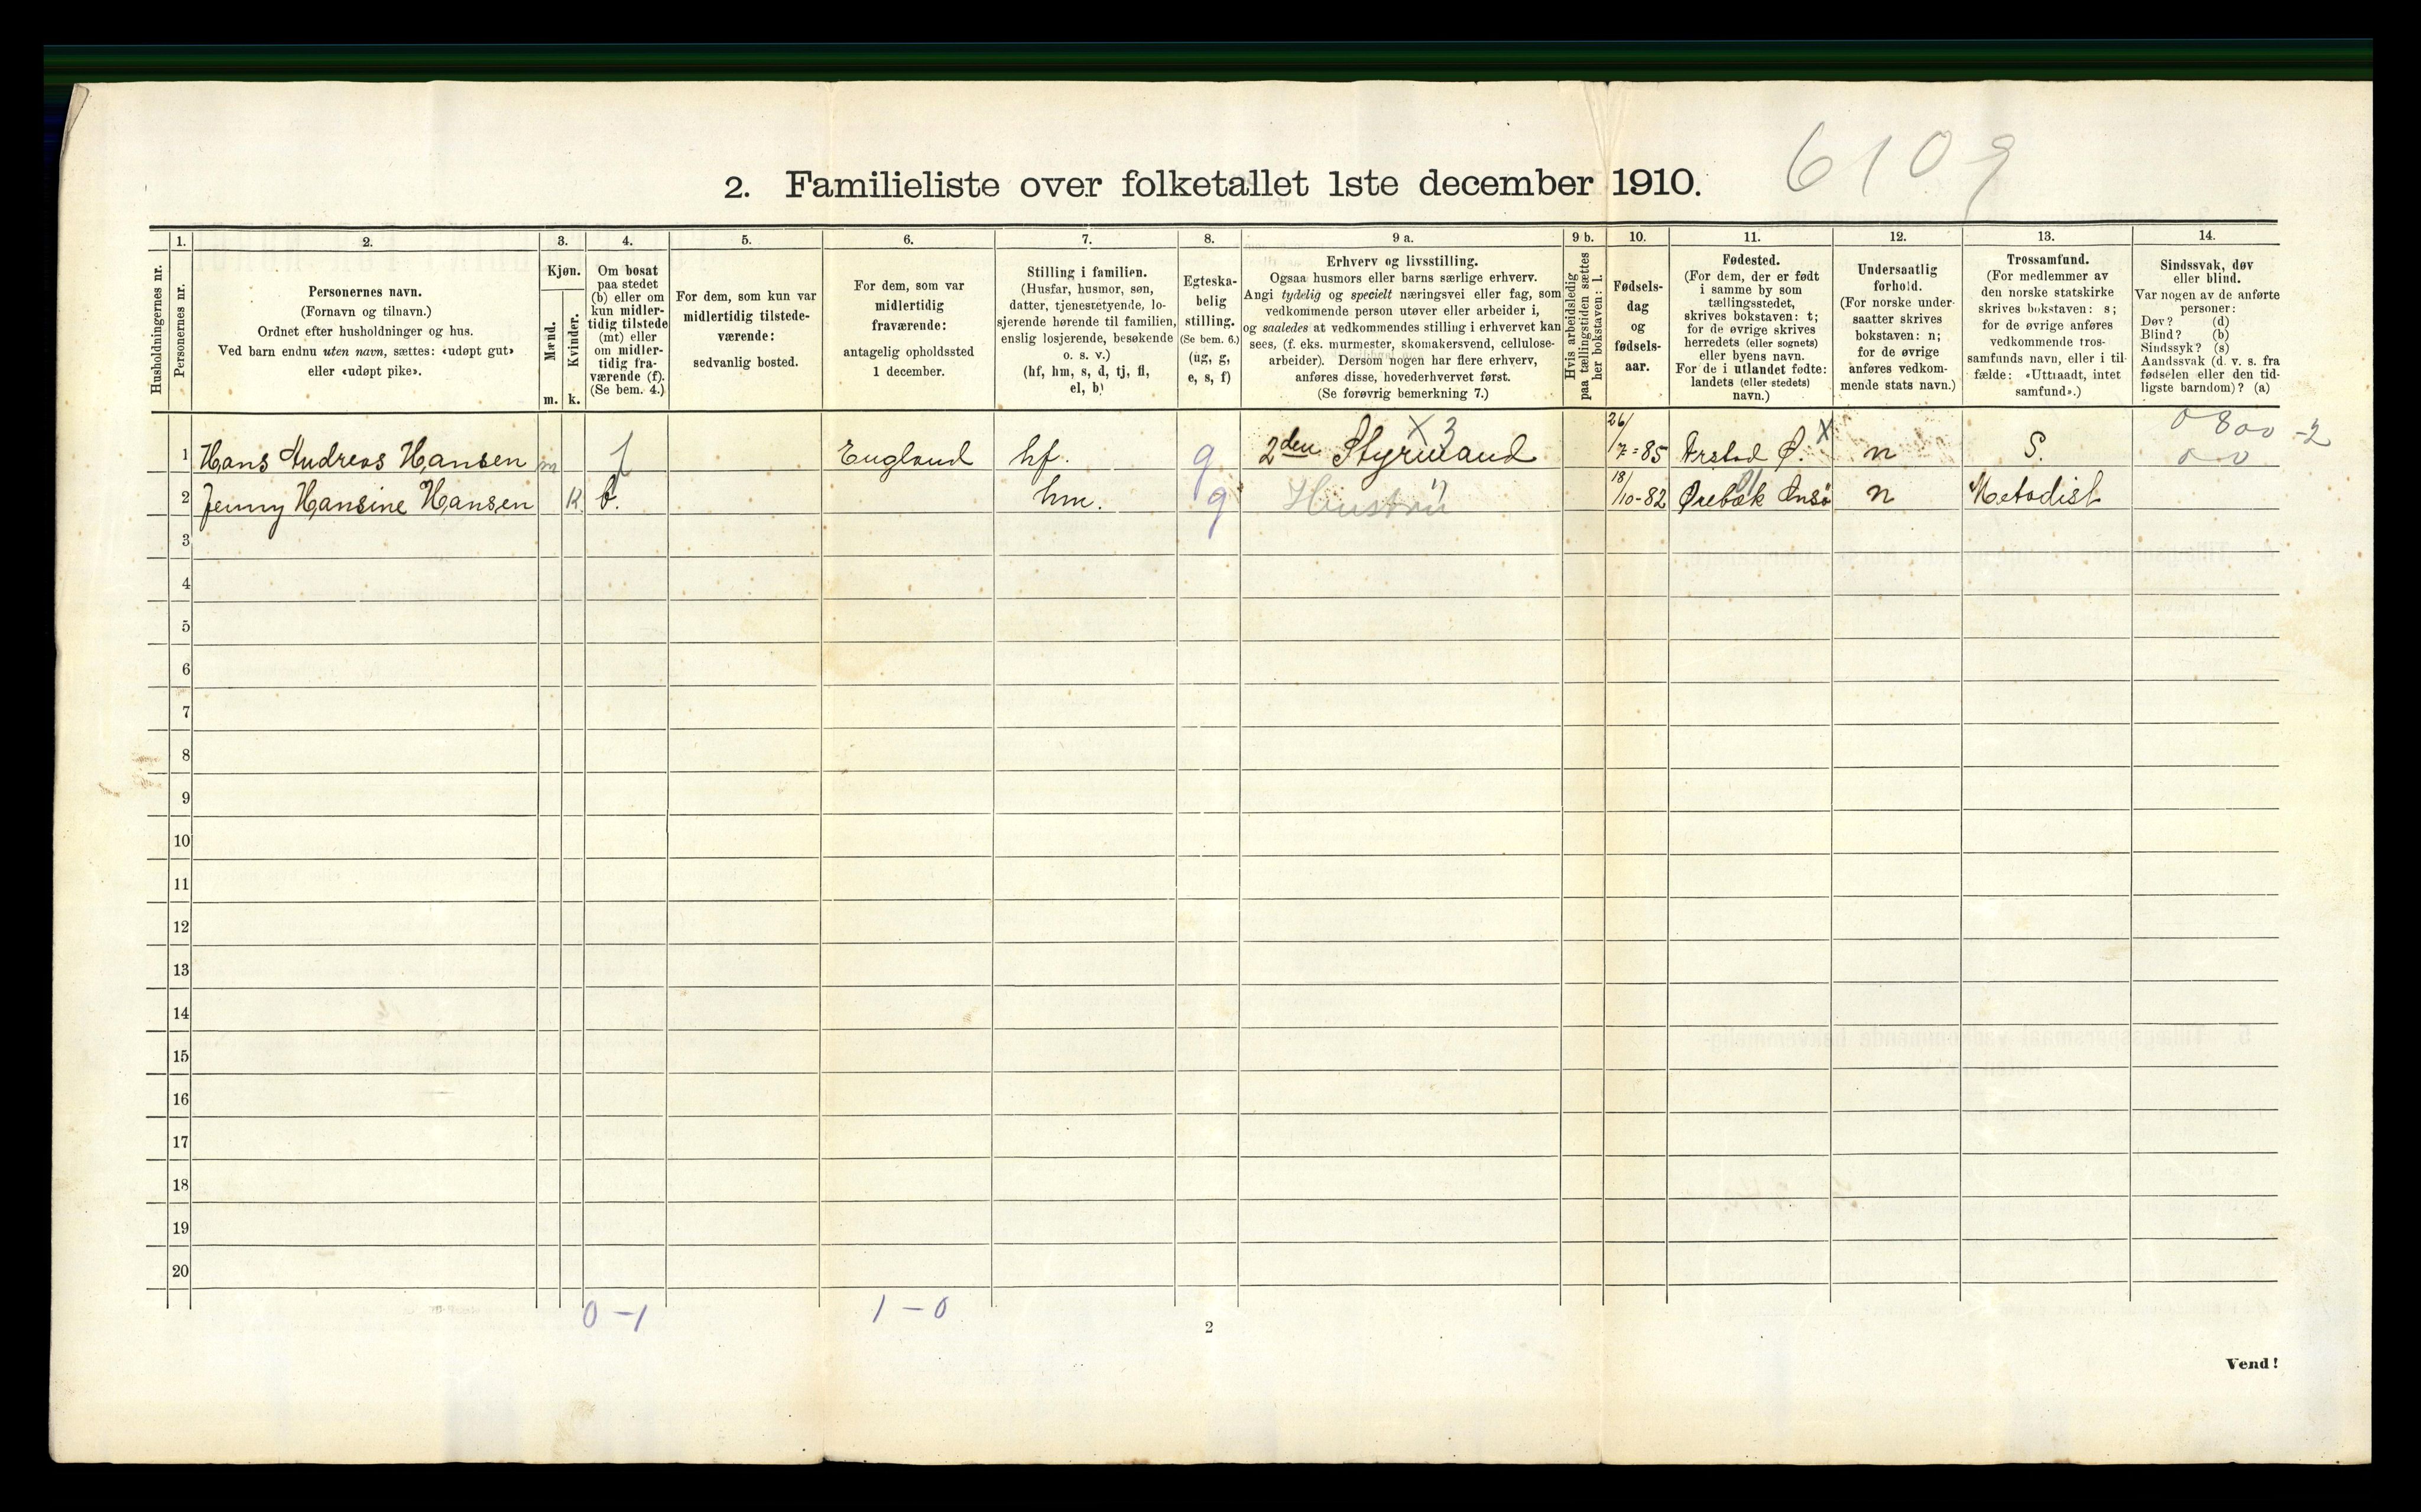 6109
2. Familieliste over folketallet 1ste december 1910.
Husholdningernes nr.
1.
Personernes nr.
2.
Personernes navn.
(Fornavn og tilnavn.)
Ordnet efter husholdninger og hus.
Ved barn endnu uten navn, sættes: «udøpt gut»
eller «udøpt pike».
3.
Kjøn.
Mænd.
Kvinder.
m. k.
4.
Om bosat
paa stedet
(b) eller om
kun midler-
tidig tilstede
(mt) eller
om midler-
tidig fra-
værende (f).
(Se bem. 4.)
5.
For dem, som kun var
midlertidig tilstede-
værende:
sedvanlig bosted.
6.
For dem, som var
midlertidig
fraværende:
antagelig opholdssted
1 december.
7.
Stilling i familien.
(Husfar, husmor, søn,
datter, tjenestetyende, lo-
sjerende hørende til familien,
enslig losjerende, besøkende
o. s. v.)
(hf, hm, s, d, tj, fl,
el, b)
8.
Egteska-
belig
stilling.
(Se bem. 6.)
(ug, g,
e, s, f)
9 a.
Erhverv og livsstilling.
Ogsaa husmors eller barns særlige erhverv.
Angi tydelig og specielt næringsvei eller fag, som
vedkommende person utøver eller arbeider i,
og saaledes at vedkommendes stilling i erhvervet kan
sees, (f. eks. murmester, skomakersvend, cellulose-
arbeider). Dersom nogen har flere erhverv,
anføres disse, hovederhvervet først.
(Se forøvrig bemerkning 7.)
9 b.
Hvis arbeidsledig
paa tællingstiden sættes
her bokstaven: l.
10.
Fødsels-
dag
og
fødsels-
aar.
11.
Fødested.
(For dem, der er født
i samme by som
tællingsstedet,
skrives bokstaven: t;
for de øvrige skrives
herredets (eller sognets)
eller byens navn.
For de i utlandet fødte:
landets (eller stedets)
navn.)
12.
Undersaatlig
forhold.
(For norske under-
saatter skrives
bokstaven: n;
for de øvrige
anføres vedkom-
mende stats navn.)
13.
Trossamfund.
(For medlemmer av
den norske statskirke
skrives bokstaven: s;
for de øvrige anføres
vedkommende tros-
samfunds navn, eller i til-
fælde: «Uttraadt, intet
samfund».)
14.
Sindssvak, døv
eller blind.
Var nogen av de anførte
personer:
Døv? (d)
Blind? (b)
Sindssyk? (s)
Aandssvak (d. v. s. fra
fødselen eller den tid-
ligste barndom)? (a)
X 3
0800 -2
1 Hans Andreas Hansen m f England hf. g 2den Styrmand 26/7-85 Ø. X n S. 0-0
2 Jenny Hansine Hansen K. b. hm. g Hustru 18/10-82 Ørebæk Onsø n Metodist
3
4
5
6
7
8
9
10
11
12
13
14
15
16
17
18
19
20
0-1 1-0
2
Vend!